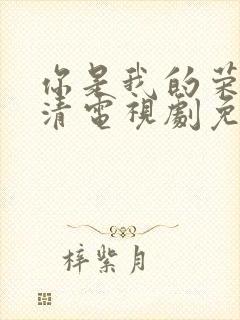 你是我的荣
清电视剧免
梓紫月